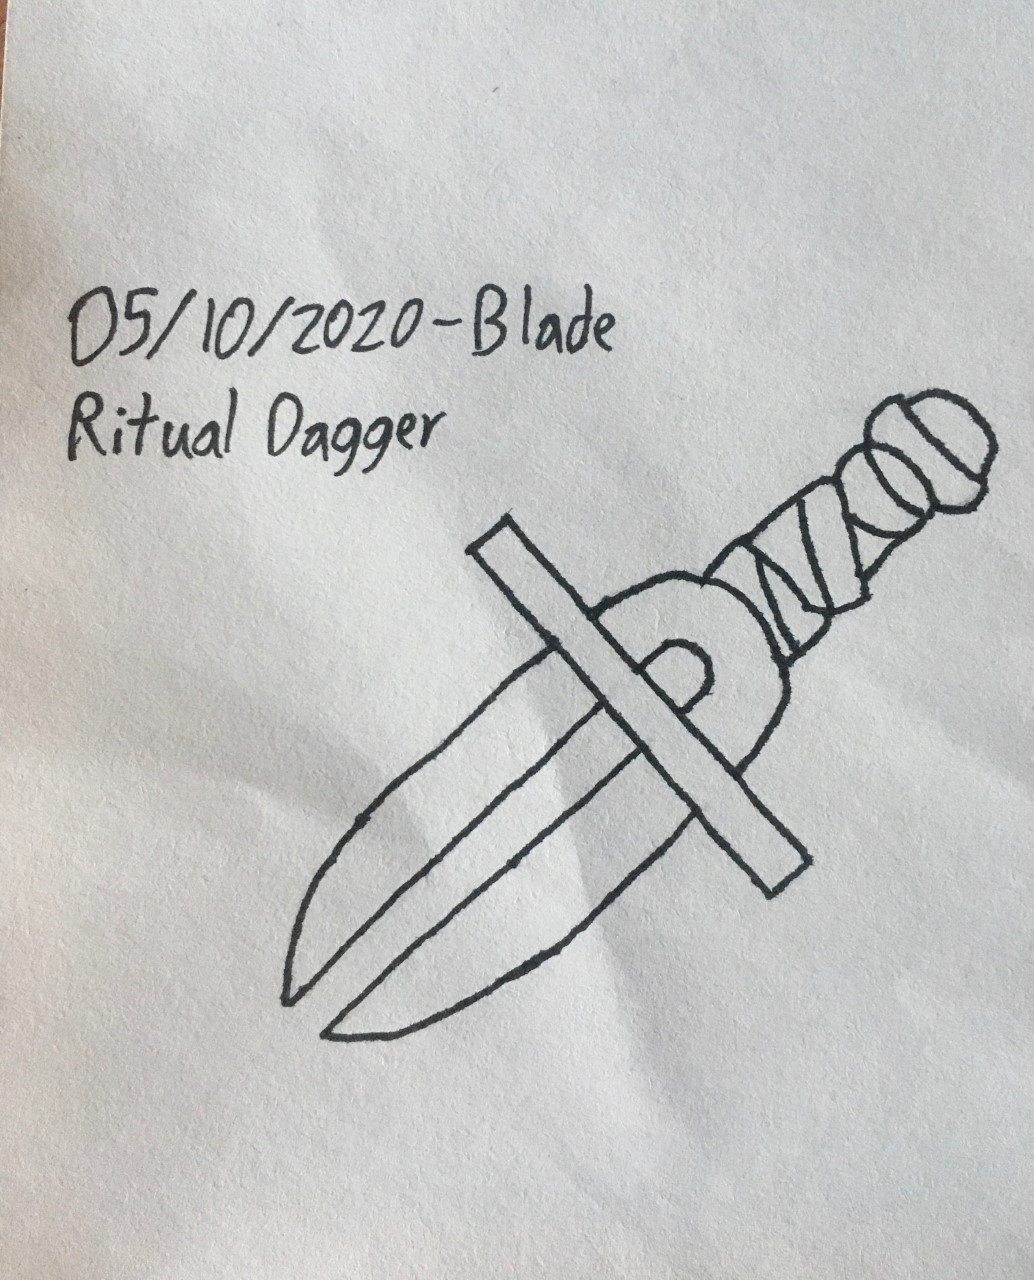 05/10/2020-Blade
Ritual Dagger